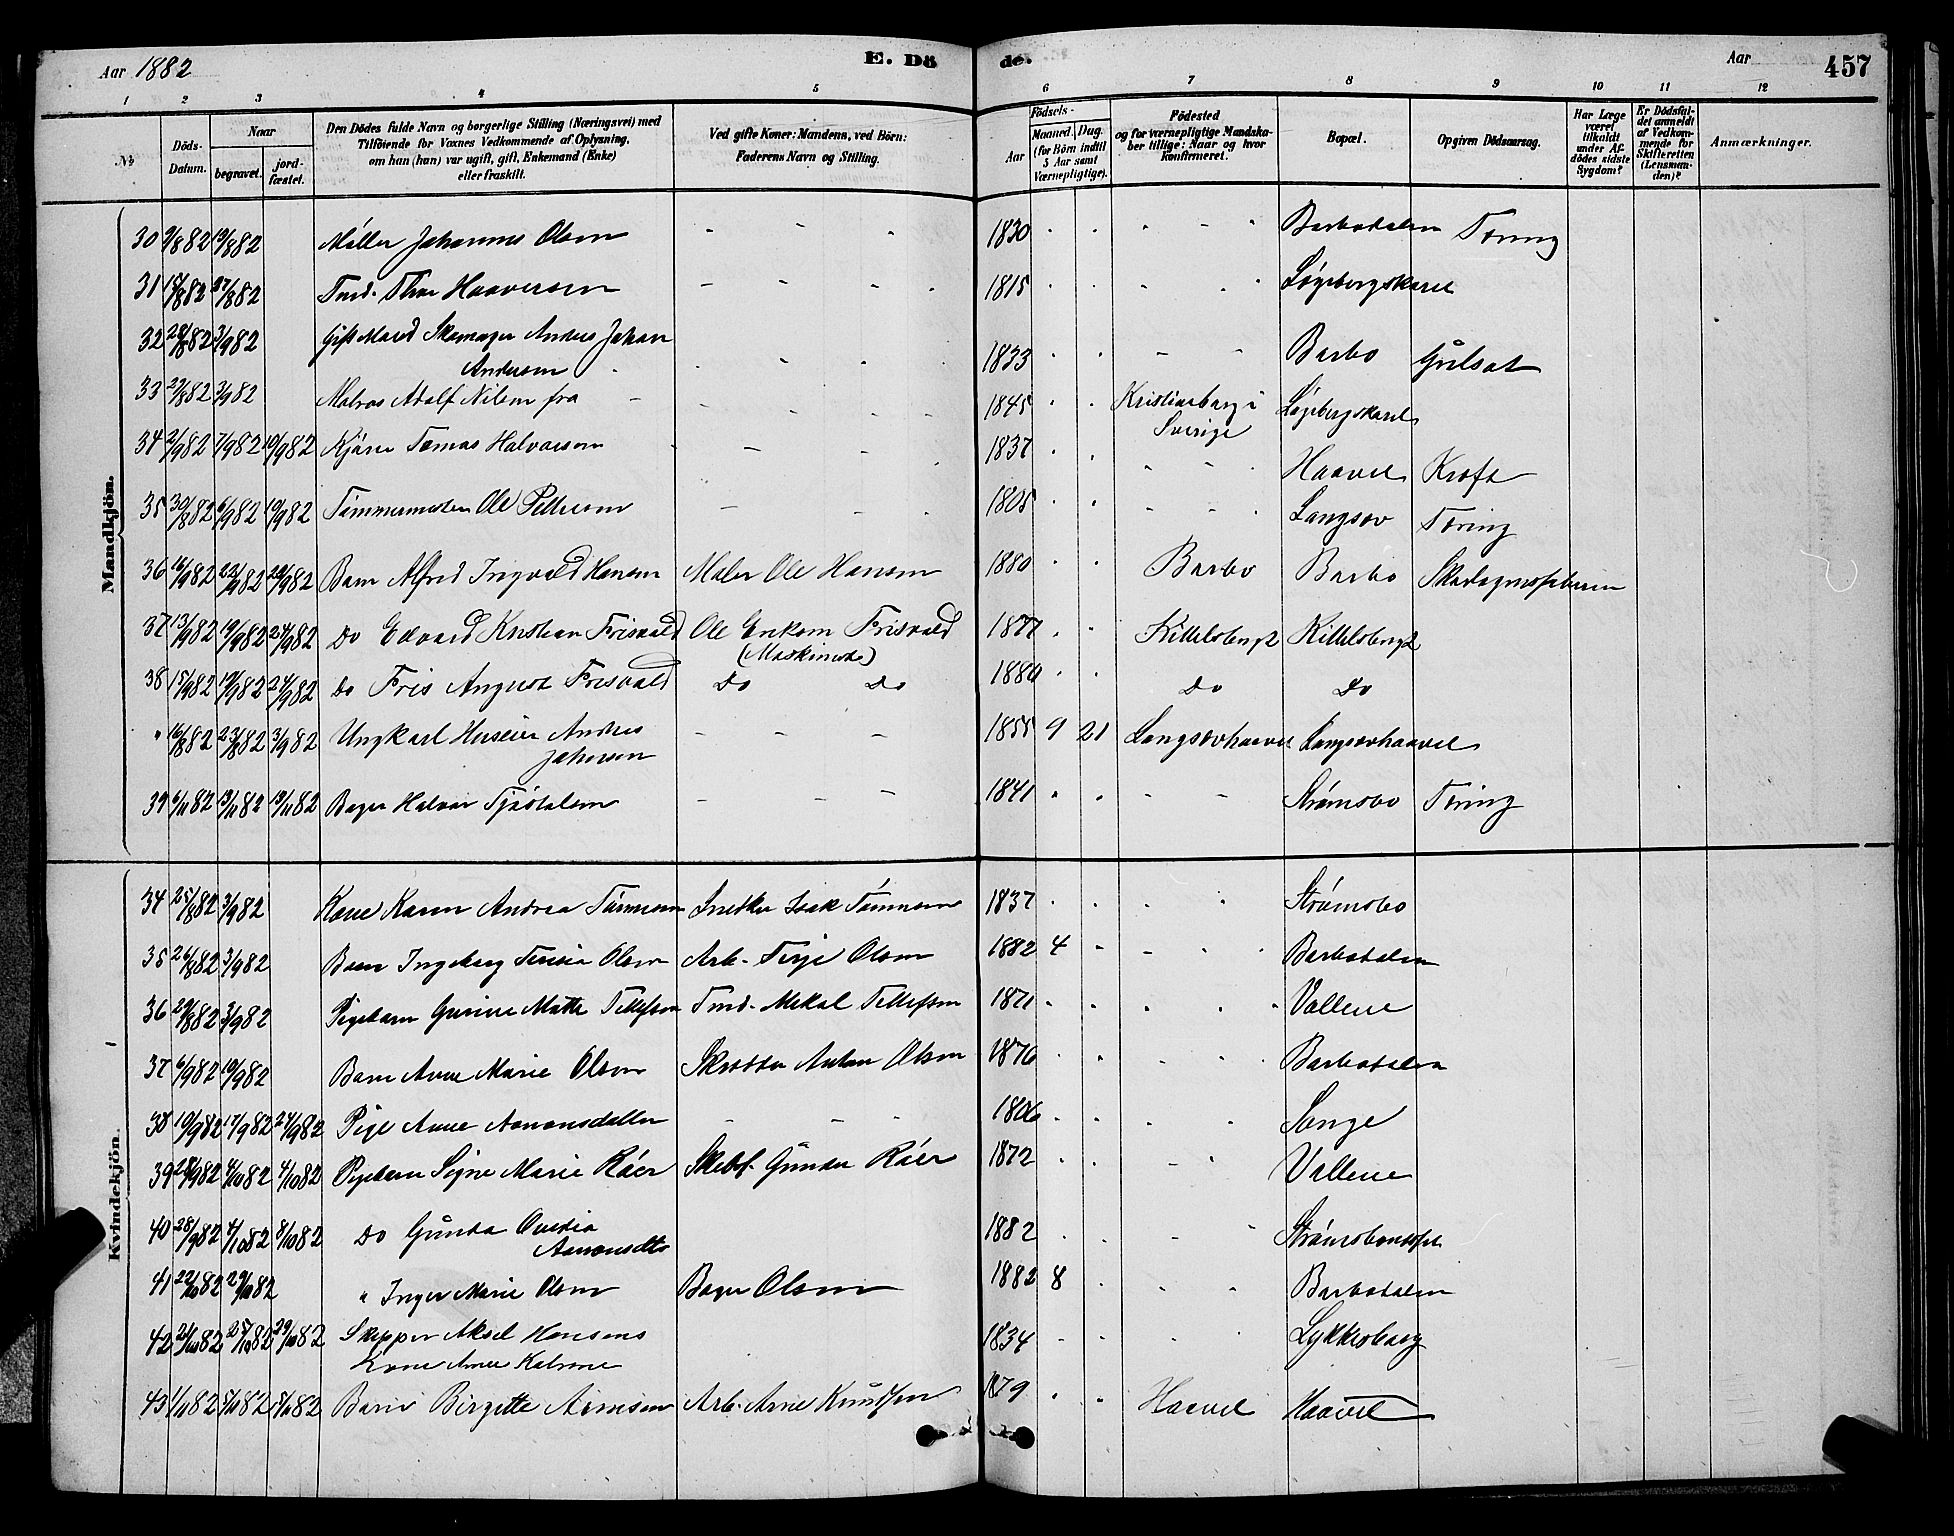 Aar 1882 E. Dö de. Aar 457
1 2 3 4 5 6 7 8 9 10 11 12
No
Döds-Datum.
Naar
begravet.
jord-fæstet.
Den Dödes fulde Navn og borgerlige Stilling (Næringsvei) med
Tilföiende for Voxnes Vedkommende af Oplysning,
om han (hun) var ugift, gift, Enkemand (Enke)
eller fraskilt.
Ved gifte Koner: Mandens, ved Börn:
Faderens Navn og Stilling.
Födsels-
Aar
Maaned. Dag.
(for Börn indtil
5 Aar samt
Værnepligtige).
Födested
og for værnepligtige Mandska-
ber tillige: Naar og hvor
konfirmeret.
Bopæl.
Opgiven Dödsaarsag.
Har Læge
været
tilkaldt
under Af-
dödes sidste
Sygdom?
Er Dödsfal-
det anmeldt
af Vedkom-
mende for
Skifteretten
(Lensman-
den)?
Anmærkninger.
Mandkjön.
30 9/8 82 19/8 82 Møller Johannes Olsen - - - 1830 Barbodalen Tæring
31 18/8 82 27/8 82 Tmd. Thor Haaversen - - - 1815 Løgebergskaret
32 28/8 82 3/9 82 Gift Mand Skomager Anders Johan
Andersen 1833 - - Barbo Gulsot
33 29/8 82 3/9 82 Matros Adolf Nilsen fra - 1845 Kristianberg i Løgebergskaret
Sverige
34 2/9 82 7/9 82 10/9 82 Tomas Halvorsen - - - 1837 Haavet Kræft
35 30/8 82 6/9 82 10/9 82 Tømmermester Ole Pettersen - - 1805 Langsæv Tæring
36 16/9 82 22/9 82 Barn Alfred Ingvald Hansen Maler Ole Hansen 1880 Barbo Barbo Skarlagensfeberen
37 13/9 82 19/9 82 24/9 82 Do Edvard Kristian Frisvold Ole Eriksen Frisvold 1877 Kittelsbugt Kittelsbugt
(Maskinist)
38 15/9 82 19/9 82 24/9 82 Do Fris August Frisvold Do Do 1880 Do Do
" 16/8 82 23/8 82 3/9 82 Ungkarl Anders - - - 1855 9 21 Langsævhaavet Langsævhaavet
Johnsen
39 6/11 82 13/11 82 19/11 82 Bager Halvor Tjøstolsen - - - 1841 Strømsbo Tæring
Kvindekjön.
34 25/8 82 3/9 82 Kone Karen Andrea Tønnesen Snedker Isak Tønnesen 1837 Strømsbo
35 26/8 82 3/9 82 Barn Ingeborg Terisia Olsen Arb. Terje Olsen 1882 4 Barbodalen
36 29/8 82 3/9 82 Pigebarn Gurine Mathe Tellefsen Tmd. Mekal Tellefsen 1871 Vallene
37 6/9 82 10/9 82 Barn Anne Marie Olsen Skrædder Anton Olsen 1876 Barbodalen
38 10/9 82 17/9 82 24/9 82 Pige Anne Aanonsdatter - - - 1806 Songe
39 28/9 82 4/10 82 4/10 82 Pigebarn Signe Marie Røer Skibsf. Gunder Røer 1872 Vallene
40 28/9 82 4/10 82 8/10 82 Do Gunda Ovedia
Aanonsdtr 1882
41 22/10 82 29/10 82 " Inger Marie Olsen Bager Olsen 1882 8 Barbodalen
42 21/10 82 25/10 82 29/10 82 Skipper Aksel Hansens 1834 Lykkesborg
Kone Anne
43 1/11 82 5/11 82 5/11 82 Barn Birgitte Arnesen Arb. Arne Knudsen 1879 Haavet Haavet